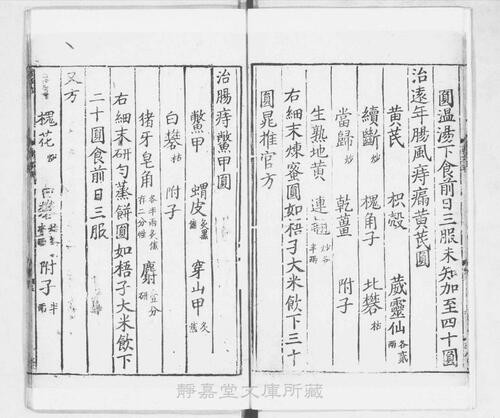 圓温湯下食前日三服未知加至四十圓
治遠年腸風痔瘻黄芪圓
黄芪 枳殻 葳靈仙各麩
續斷炒 槐角子 北礬枯
當歸炒 乾薑 附子
生熟地黄 連翹炒各半兩
右細末煉蜜圓如梧子大米飲下三十
圓晁推官方
治腸痔鱉甲圓
鱉甲 蝟皮炙黒 穿山甲炙
白礬枯 附子
猪牙皂角各半兩炙 麝壹分研
右細末研勻蒸餅圓如梧子大米飲下
二十圓食前日三服
又方
槐花炒 白礬 附子半兩
靜嘉堂文庫所藏